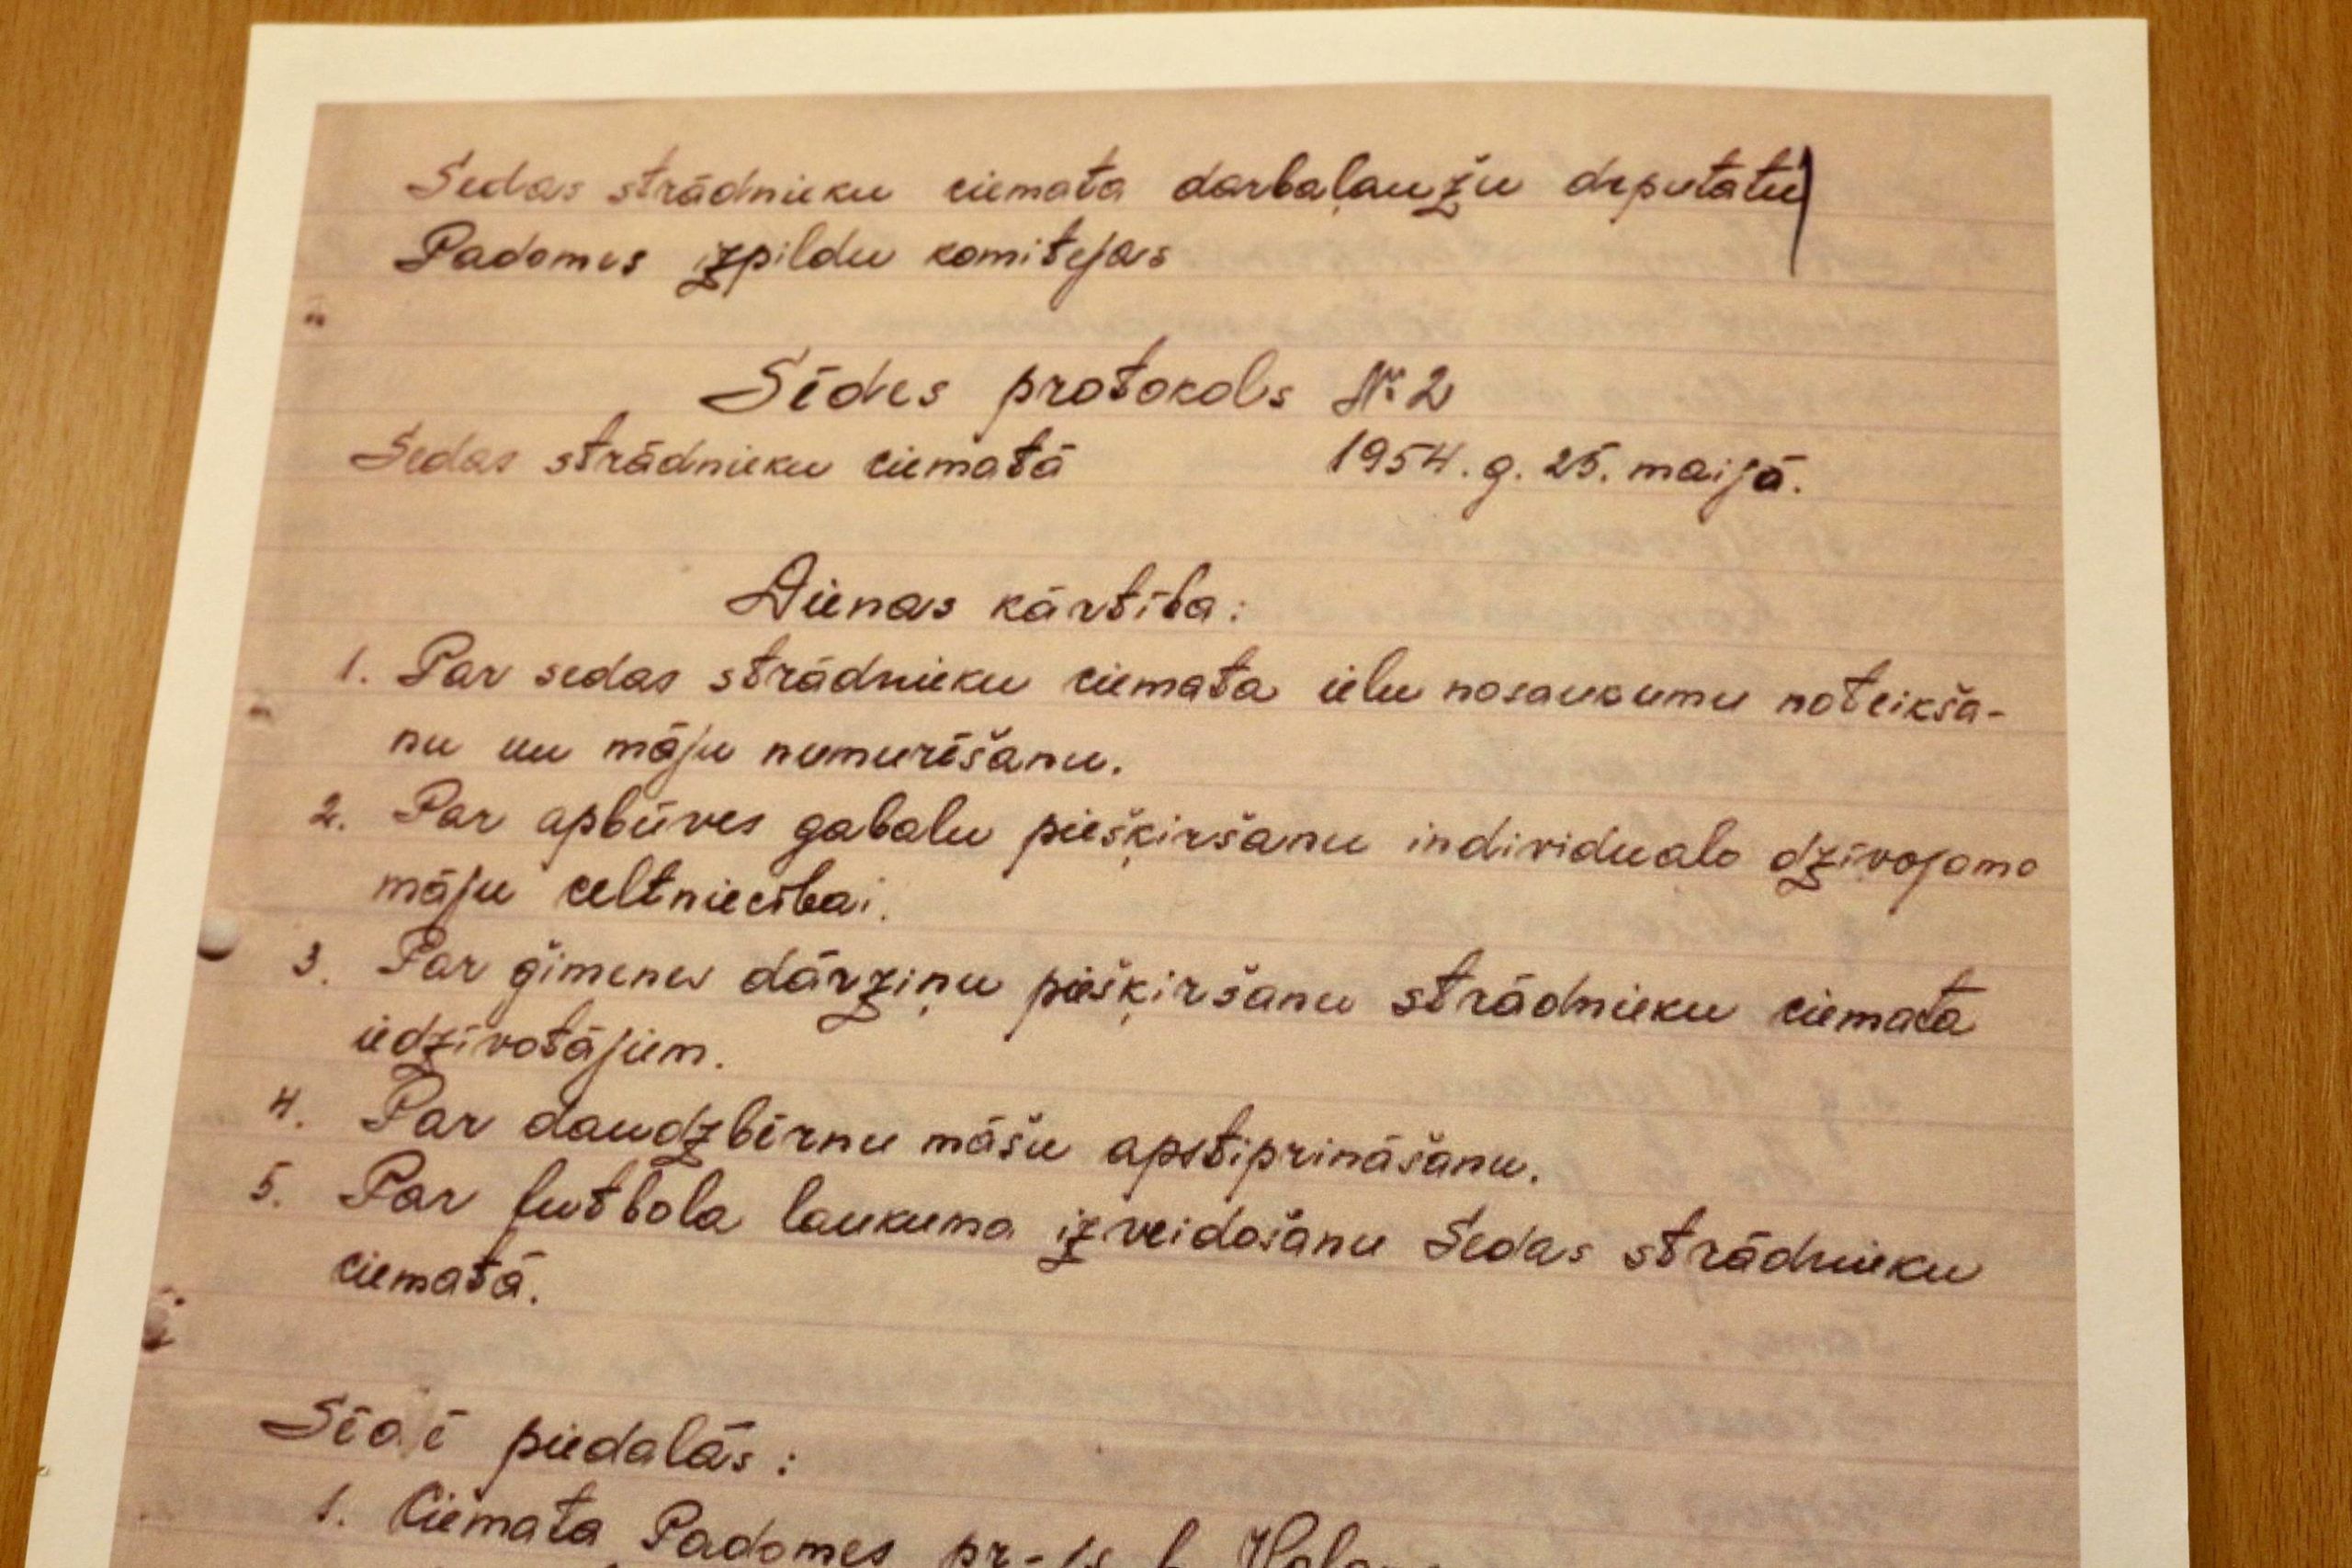 Sedas strādnieku ciemata darbaļaužu deputātu
Padomes izpildu komitejas
Sēdes protokols № 2
Sedas strādnieku ciematā 1954. g. 25. maijā.
Dienas kārtība:
1. Par sedas strādnieku ciemata ielu nosaukumu noteikša-
nu un māju numurēšanu.
2. Par apbūves gabalu piešķiršanu individuālo dzīvojamo
māju celtniecībai.
3. Par ģimenes dārziņu piešķiršanu strādnieku ciemata
iedzīvotājiem.
4. Par daudzbērnu māšu apstiprināšanu.
5. Par futbola laukuma izveidošanu Sedas strādnieku
ciematā.
Sēdē piedalās:
1. Ciemata Padomes pr-js b.